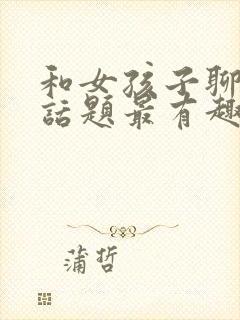 和女孩子聊
話題最有趣
蒲哲